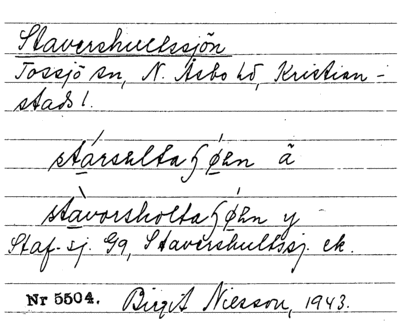 Stavershultssjön
Tossjö sn, N. Åsbo hd, Kristian-
stads l.
stársulta ʃǿen ä
stàvorsholta ʃǿen y
Staf. sj. G9, Stavershultssj. ek.
Nr 5504. Birgit Nilsson, 1943.